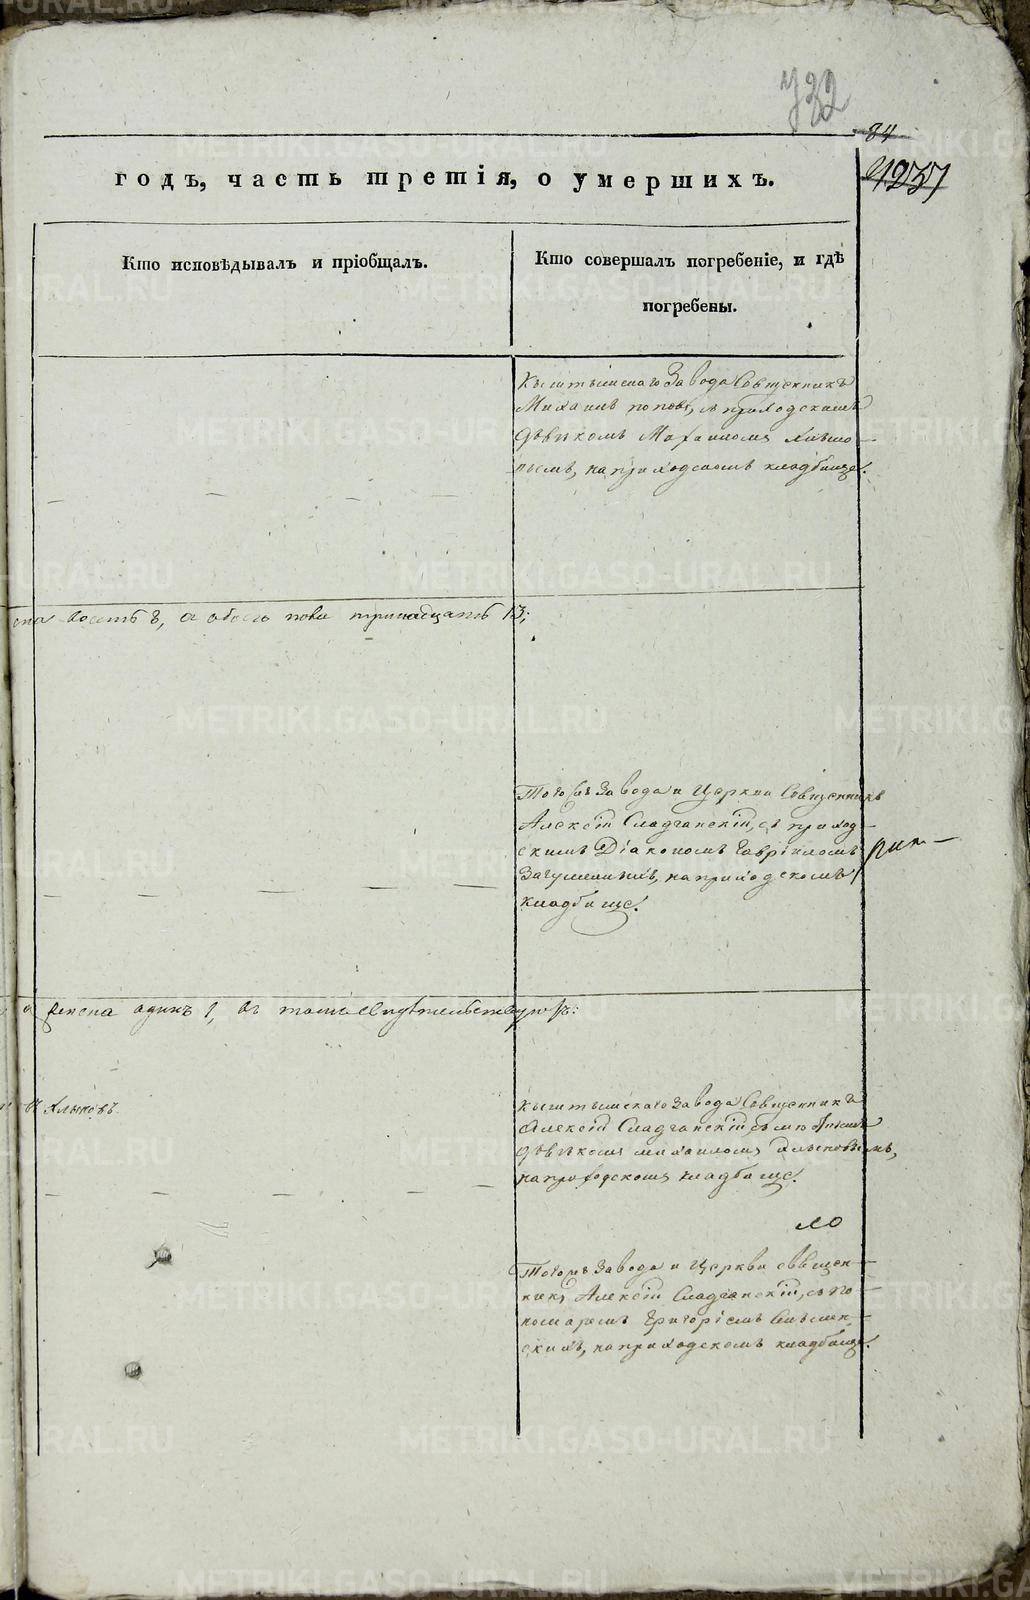 732
84
1237
годъ, часть третія, о умершихъ.
Кто исповѣдывалъ и пріобщалъ.
Кто совершалъ погребеніе, и гдѣ
погребены.
Кыштымскаго Завода Священникъ
Михаилъ Поповъ, съ приходскимъ
Дьячкомъ Михаиломъ
на приходскомъ кладбище.
8, а обоего пола тринадцать 13;
Тогожъ Завода и Церкви Священникъ
Алексій съ приход-
скимъ Діакономъ Гавріиломъ
на приходскомъ
кладбище.
пола одинъ 1, въ томъ свидѣтельствуютъ:
Клыковъ.
Кыштымскаго Завода Священникъ
Алексій
Дьячкомъ Михаиломъ Клыковымъ,
на приходскомъ кладбище.
Тогожъ Завода и Церкви Священ-
никъ Алексій съ по-
номаремъ Григоріемъ
на приходскомъ кладбище.
METRIKI.GASO-URAL.RU